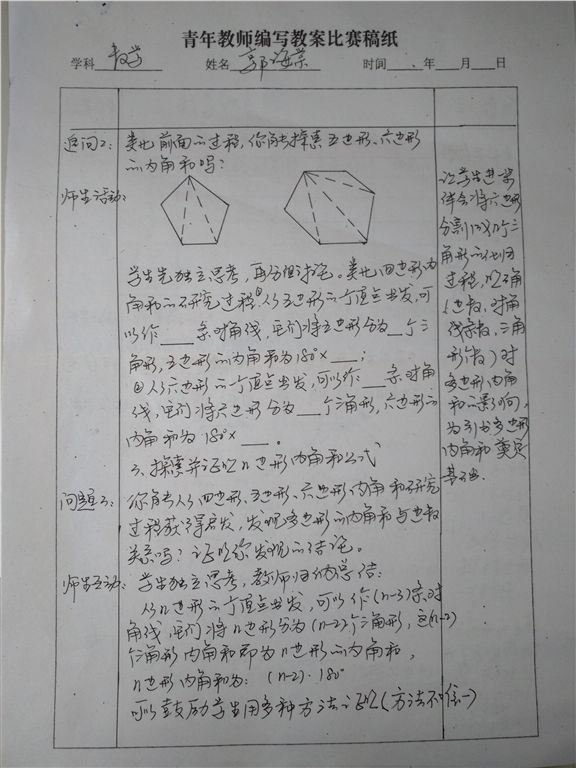 青年教师编写教案比赛稿纸
学科 数学 姓名 郭海荣 时间 年 月 日
追问2: 类比前面的过程,你能探索五边形、六边形
的内角和吗?
师生活动:
学生先独立思考,再分组讨论。类比四边形内
角和的研究过程①从五边形的一个顶点出发,可
以作___条对角线,它们将五边形分为__个三
角形,五边形的内角和为180°×___;
②从六边形的一个顶点出发,可以作___条对角
线,它们将六边形分为___个三角形,六边形的
内角和为180°×___。
3、探索并证明n边形内角和公式
问题3: 你能从四边形、五边形、六边形内角和研究
过程获得启发,发现多边形的内角和与边数
关系吗?证明你发现的结论。
师生互动: 学生独立思考,教师归纳总结:
从n边形的一个顶点出发,可以作(n-3)条对
角线,它们将n边形分为(n-2)个三角形,这(n-2)
个三角形内角和即为n边形的内角和,
n边形内角和为: (n-2)·180°
可以鼓励学生用多种方法证明(方法不唯一)
让学生进一步
体会将六边形
分割成几个三
角形的化归
过程,明确
(边数,对角
线条数,三角
形个数)对
多边形内角
和的影响,
为引出多边形
内角和奠定
基础.